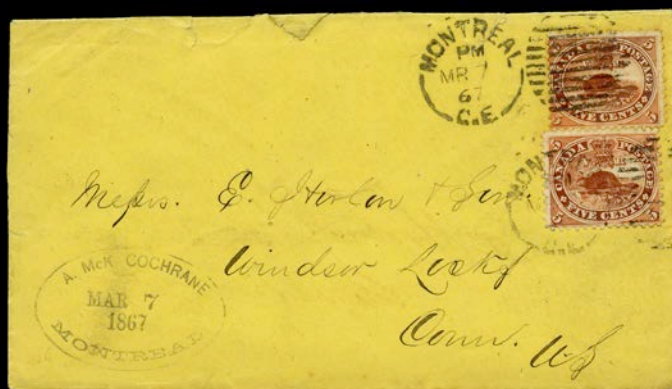 MONTREAL
PM
MR 7
67
C.E
CANADA POSTAGE
5 5
FIVE CENTS
5 5
CANADA POSTAGE
5 5
FIVE CENTS
5 5
MONT
Messrs. E. Horton & Son.
Windsor Locks
Conn. US
A. McK COCHRANE
MAR 7
1867
MONTREAL